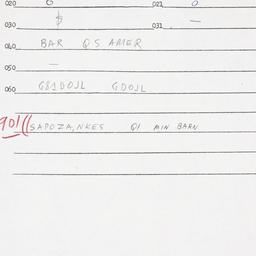 020 0 021 0
030 $ 031 —
040 BAR QS AMER
050 —
060 G81DOJL GDOJL
901 SAPOZA,NKES QI MIN BARN